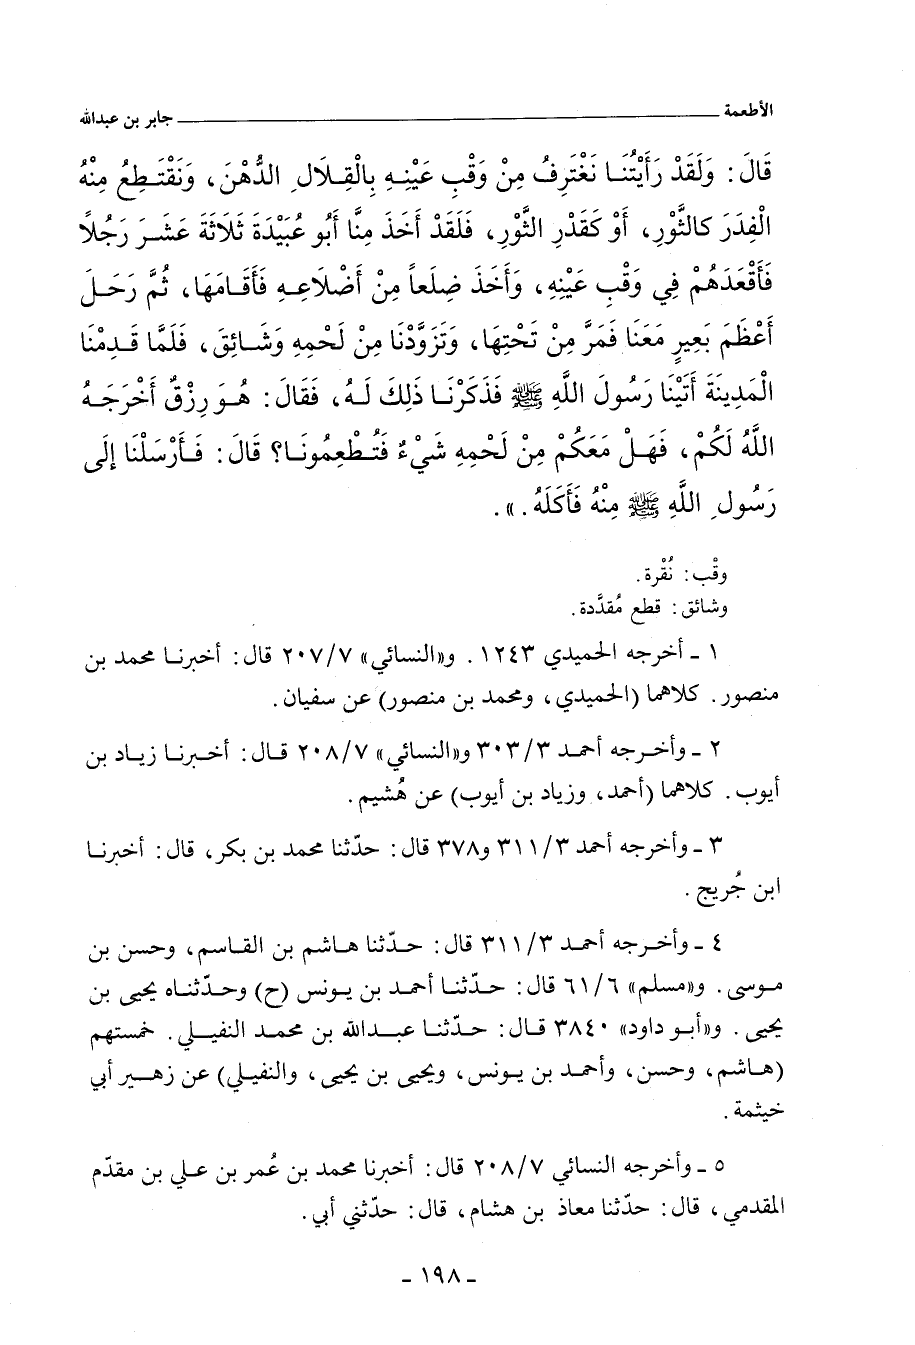 الأطعمة ــــــــــ جابر بن عبدالله
قَالَ: وَلَقَدْ رَأَيْتُنَا نَغْتَرِفُ مِنْ وَقْبِ عَيْنِهِ بِالْقِلَالِ الدُّهْنَ، وَنَقْتَطِعُ مِنْهُ
الْفِدَرَ كَالثَّوْرِ، أَوْ كَقَدْرِ الثَّوْرِ، فَلَقَدْ أَخَذَ مِنَّا أَبُو عُبَيْدَةَ ثَلَاثَةَ عَشَرَ رَجُلًا
فَأَقْعَدَهُمْ فِي وَقْبِ عَيْنِهِ، وَأَخَذَ ضِلَعاً مِنْ أَضْلَاعِهِ فَأَقَامَهَا، ثُمَّ رَحَلَ
أَعْظَمَ بَعِيرٍ مَعَنَا فَمَرَّ مِنْ تَحْتِهَا، وَتَزَوَّدْنَا مِنْ لَحْمِهِ وَشَائِقَ، فَلَمَّا قَدِمْنَا
الْمَدِينَةَ أَتَيْنَا رَسُولَ اللَّهِ ﷺ فَذَكَرْنَا ذَلِكَ لَهُ، فَقَالَ: هُوَ رِزْقٌ أَخْرَجَهُ
اللَّهُ لَكُمْ، فَهَلْ مَعَكُمْ مِنْ لَحْمِهِ شَيْءٌ فَتُطْعِمُونَا؟ قَالَ: فَأَرْسَلْنَا إِلَى
رَسُولِ اللَّهِ ﷺ مِنْهُ فَأَكَلَهُ.».
وقْب: نُقْرة.
وشائق: قطع مُقدَّدة.
١ ـ أخرجه الحميدي ١٢٤٣. و«النسائي» ٢٠٧/٧ قال: أخبرنا محمد بن
منصور. كلاهما (الحميدي، ومحمد بن منصور) عن سفيان.
٢ ـ وأخرجه أحمد ٣٠٣/٣ و«النسائي» ٢٠٨/٧ قال: أخبرنا زياد بن
أيوب. كلاهما (أحمد، وزياد بن أيوب) عن هُشيم.
٣ ـ وأخرجه أحمد ٣١١/٣ و٣٧٨ قال: حدّثنا محمد بن بكر، قال: أخبرنا
ابن جُريج.
٤ ـ وأخرجه أحمد ٣١١/٣ قال: حدّثنا هاشم بن القاسم، وحسن بن
موسى. و«مسلم» ٦١/٦ قال: حدّثنا أحمد بن يونس (ح) وحدّثناه يحيى بن
يحيى. و«أبو داود» ٣٨٤٠ قال: حدّثنا عبدالله بن محمد النفيلي. خمستهم
(هاشم، وحسن، وأحمد بن يونس، ويحيى بن يحيى، والنفيلي) عن زهير أبي
خيثمة.
٥ ـ وأخرجه النسائي ٢٠٨/٧ قال: أخبرنا محمد بن عُمر بن علي بن مقدّم
المقدمي، قال: حدّثنا معاذ بن هشام، قال: حدّثني أبي.
ـ ١٩٨ ـ